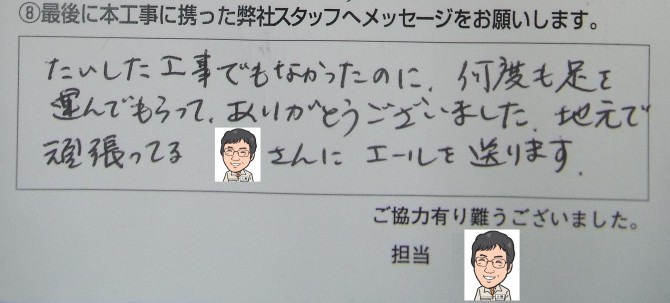 ⑧最後に本工事に携った弊社スタッフへメッセージをお願いします。
たいした工事でもなかったのに、何度も足を
運んでもらって、ありがとうございました。地元で
頑張ってる さんに エールを 送ります。
ご協力有り難うございました。
担当